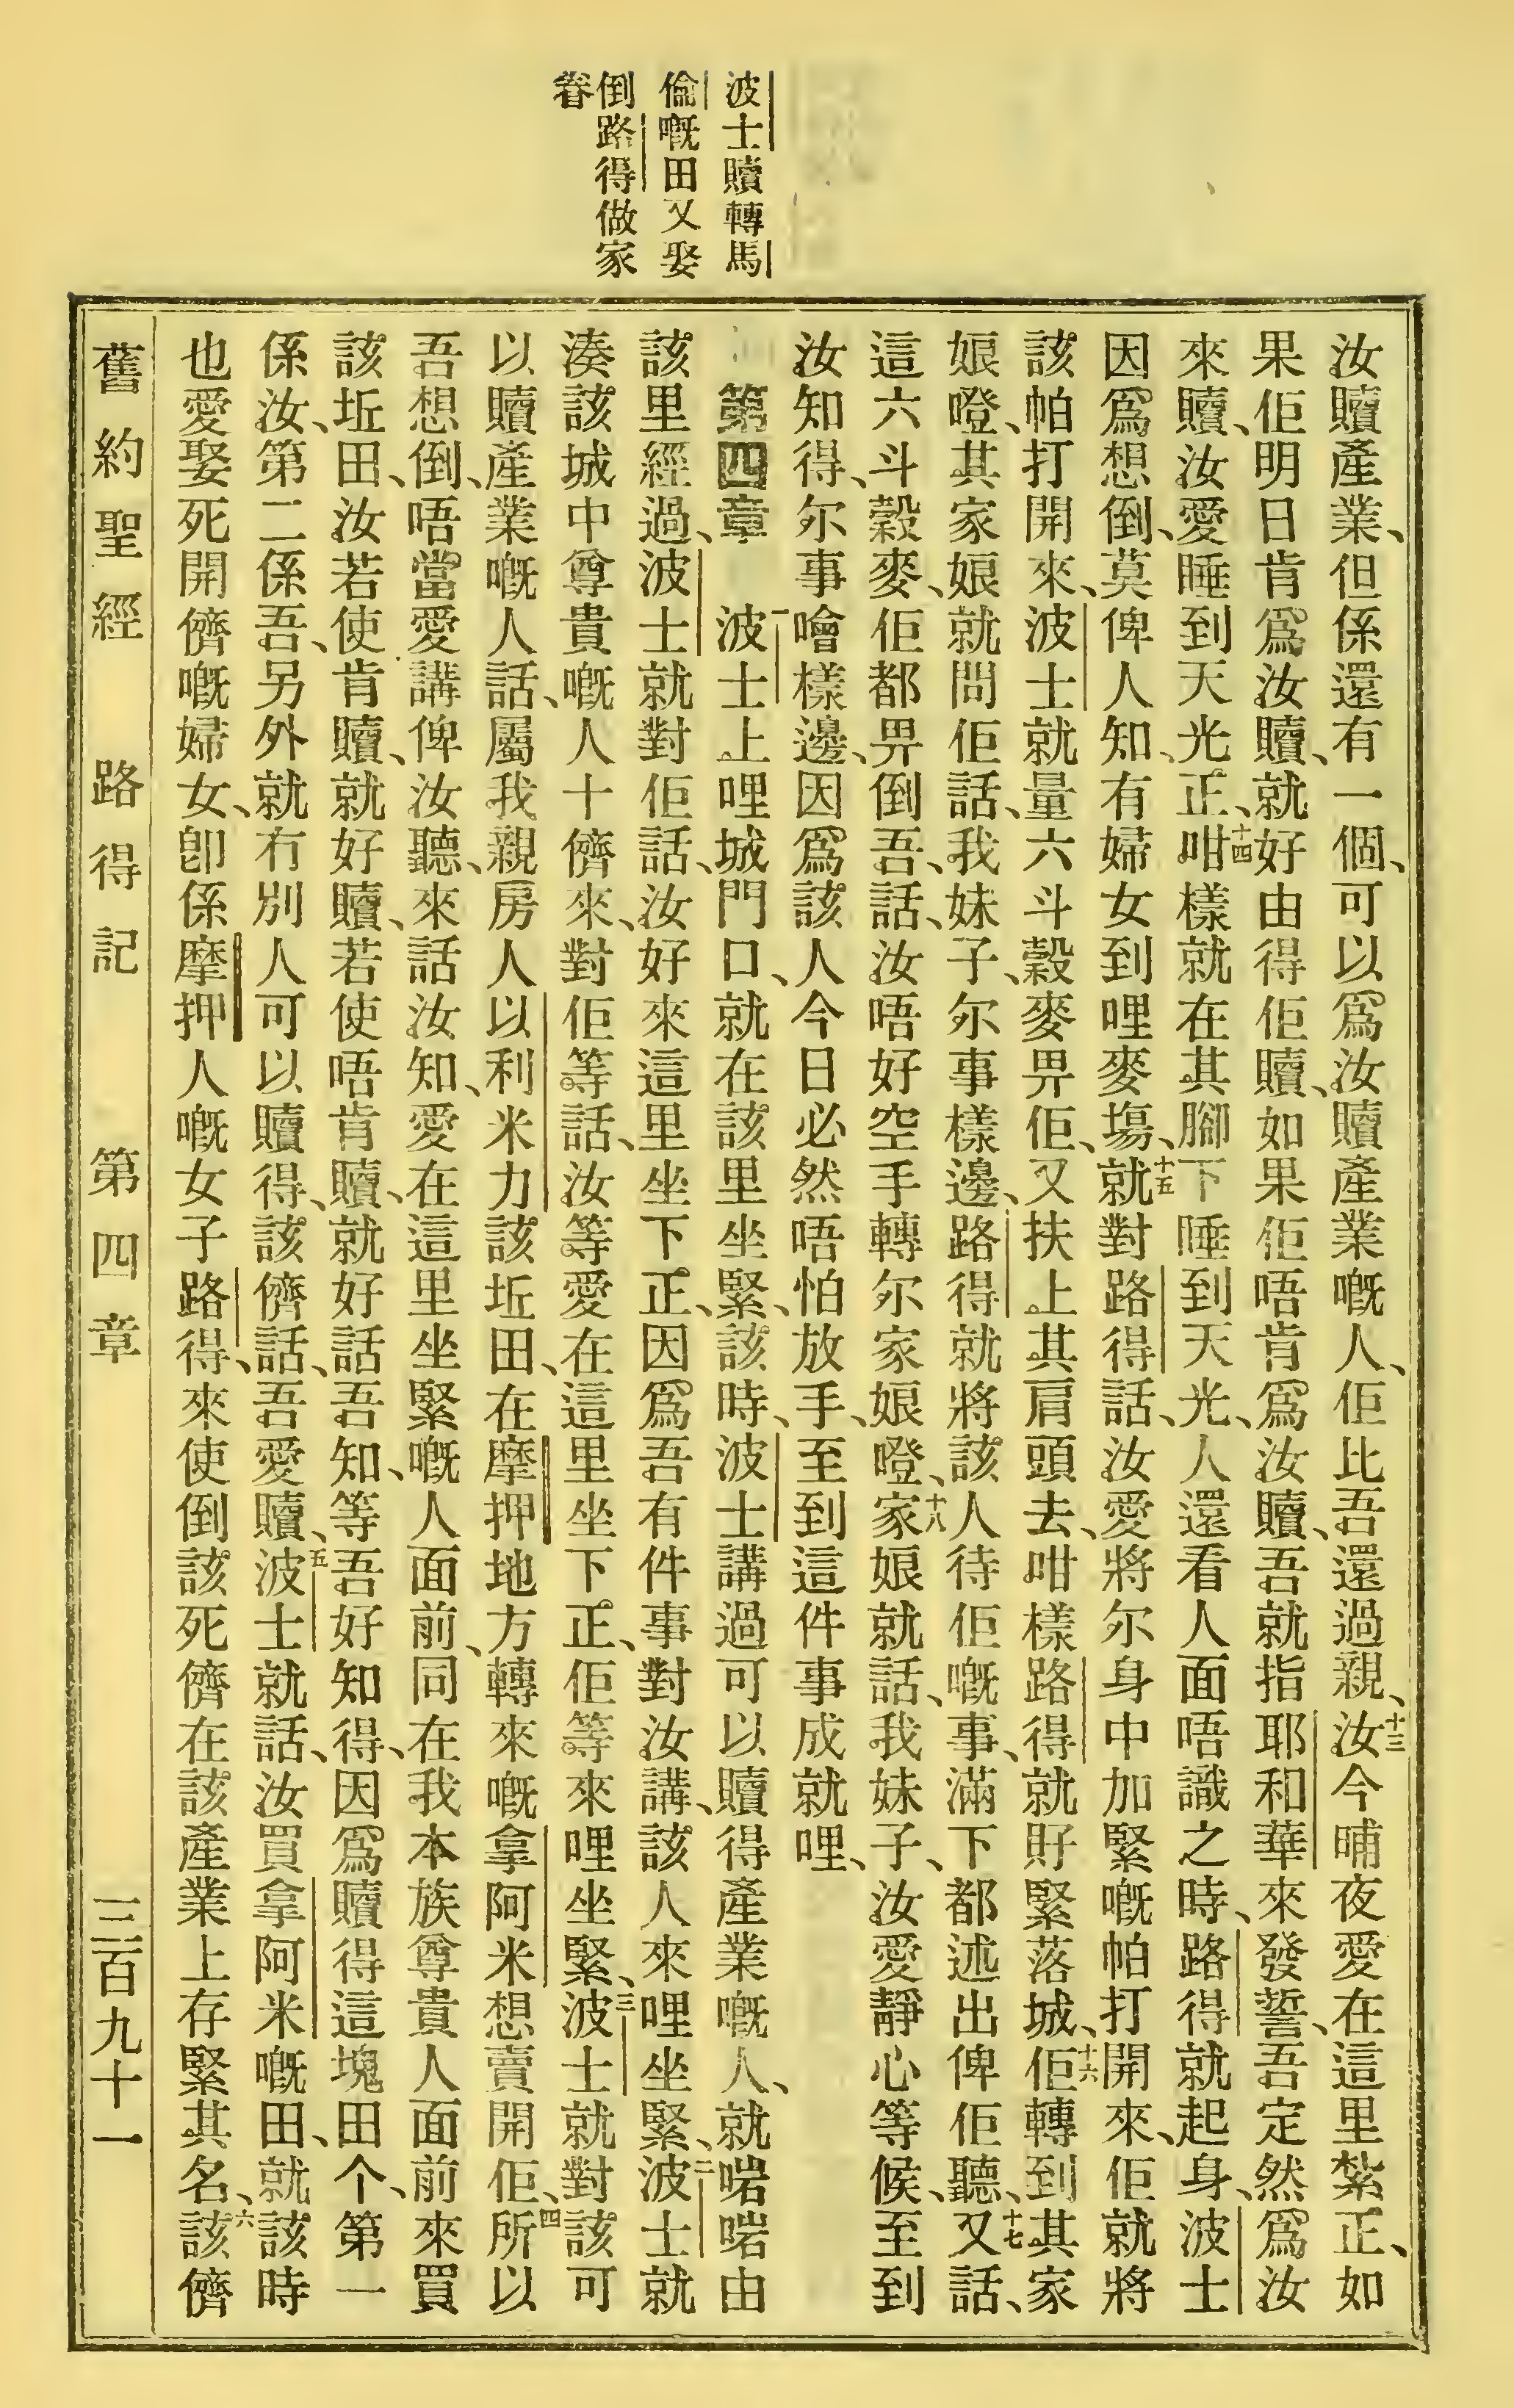 波士贖轉馬
倫嘅田又娶
倒路得做家
眷
汝贖產業、但係還有一個、可以爲汝贖產業嘅人、佢比吾還過親、十三汝今晡夜愛在這里紮正、如
果佢明日肯爲汝贖、就好由得佢贖、如果佢唔肯爲汝贖、吾就指耶和華來發誓、吾定然爲汝
來贖、汝愛睡到天光正、十四咁樣就在其腳下睡到天光、人還看人面唔識之時、路得就起身、波士
因爲想倒、莫俾人知、有婦女到哩麥塲、十五就對路得話、汝愛將尔身中加緊嘅帕打開來、佢就將
該帕打開來、波士就量六斗穀麥畀佢、又扶上其肩頭去、咁樣路得就好緊落城、十六佢轉到其家
娘嶝、其家娘就問佢話、我妹子、尔事樣邊、路得就將該人待佢嘅事、滿下都述出俾佢聽、十七又話、
這六斗穀麥、佢都畀倒吾、話、汝唔好空手轉尔家娘嶝、十八家娘就話、我妹子、汝愛靜心等候、至到
汝知得、尔事噲樣邊、因爲該人今日必然唔怕放手、至到這件事成就哩、
第四章 一波士上哩城門口、就在該里坐緊、該時、波士講過可以贖得產業嘅人、就啱啱由
該里經過、波士就對佢話、汝好來這里坐下正、因爲吾有件事對汝講、該人來哩坐緊、二波士就
湊該城中尊貴嘅人十儕來、對佢等話、汝等愛在這里坐下正、佢等來哩坐緊、三波士就對該可
以贖產業嘅人話、屬我親房人以利米力該坵田、在摩押地方轉來嘅拿阿米想賣開佢、四所以
吾想倒、唔當愛講俾汝聽、來話汝知、愛在這里坐緊嘅人面前、同在我本族尊貴人面前來買
該坵田、汝若使肯贖、就好贖、若使唔肯贖、就好話吾知、等吾好知得、因爲贖得這塊田个、第一
係汝、第二係吾、另外就冇別人可以贖得、該儕話、吾愛贖、五波士就話、汝買拿阿米嘅田、就該時
也愛娶死開儕嘅婦女、卽係摩押人嘅女子路得、來使倒該死儕在該產業上存緊其名、六該儕
舊約聖經 路得記 第四章 三百九十一